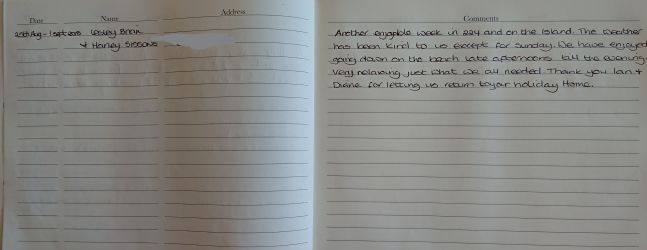 Date Name Address
25th Aug - 1 Sept 2018 Lesley Brain
+ Harley Sissons
Comments
Another enjoyable week in 224 and on the Island. The weather
has been kind to us except for Sunday. We have enjoyed
going down on the beach late afternoons till the evening.
Very relaxing just what we all needed. Thank you Ian +
Diane for letting us return to your holiday Home.